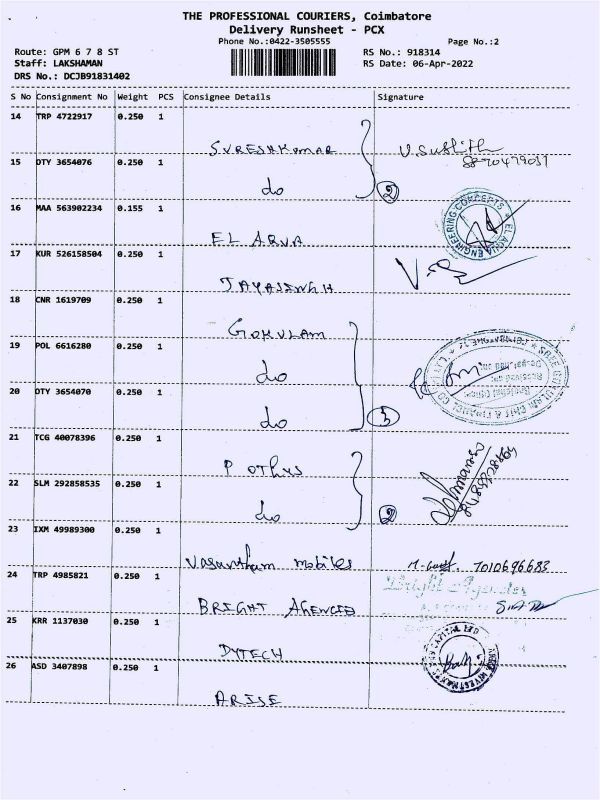 THE PROFESSIONAL COURIERS, Coimbatore
Delivery Runsheet - PCX
Phone No.:0422-3505555
Page No.:2
Route: GPM 6 7 8 ST
RS No.: 918314
Staff: LAKSHAMAN
RS Date: 06-Apr-2022
DRS No.: DCJB91831402
S No Consignment No Weight PCS Consignee Details Signature
14 TRP 4722917 0.250 1
SURESHKUMAR
15 DTY 3654076 0.250 1
do
2
16 MAA 563902234 0.155 1
EL ARUA
EL AQUA ENGINEERING CONCEPTS
17 KUR 526158504 0.250 1
JAYASINGH
18 CNR 1619709 0.250 1
GOKULAM
19 POL 6616280 0.250 1
do
20 DTY 3654070 0.250 1
do
3
21 TCG 40078396 0.250 1
POTHYS
22 SLM 292858535 0.250 1
do
2
23 IXM 49989300 0.250 1
Vasantham mobiles
7010696683
24 TRP 4985821 0.250 1
BRIGHT AGENCIES
Bright Agencies
25 KRR 1137030 0.250 1
DYTECH
26 ASD 3407898 0.250 1
ARISE